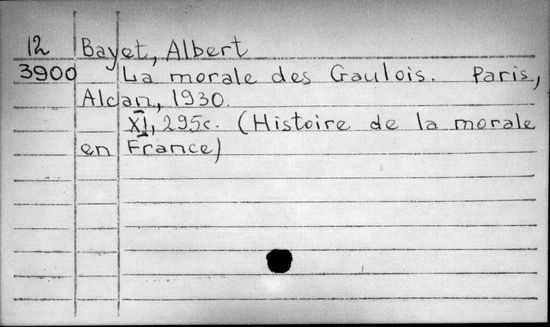 12 Bayet, Albert
3900 La morale des Gaulois. Paris,
Alcan, 1930.
XI, 295c. (Histoire de la morale
en France)